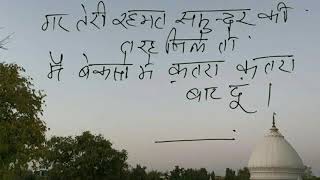 गर तेरी रहमत समुन्दर की
तरह मिले तो
मैं बेकसो मे क़तरा क़तरा
बाट दूं ।